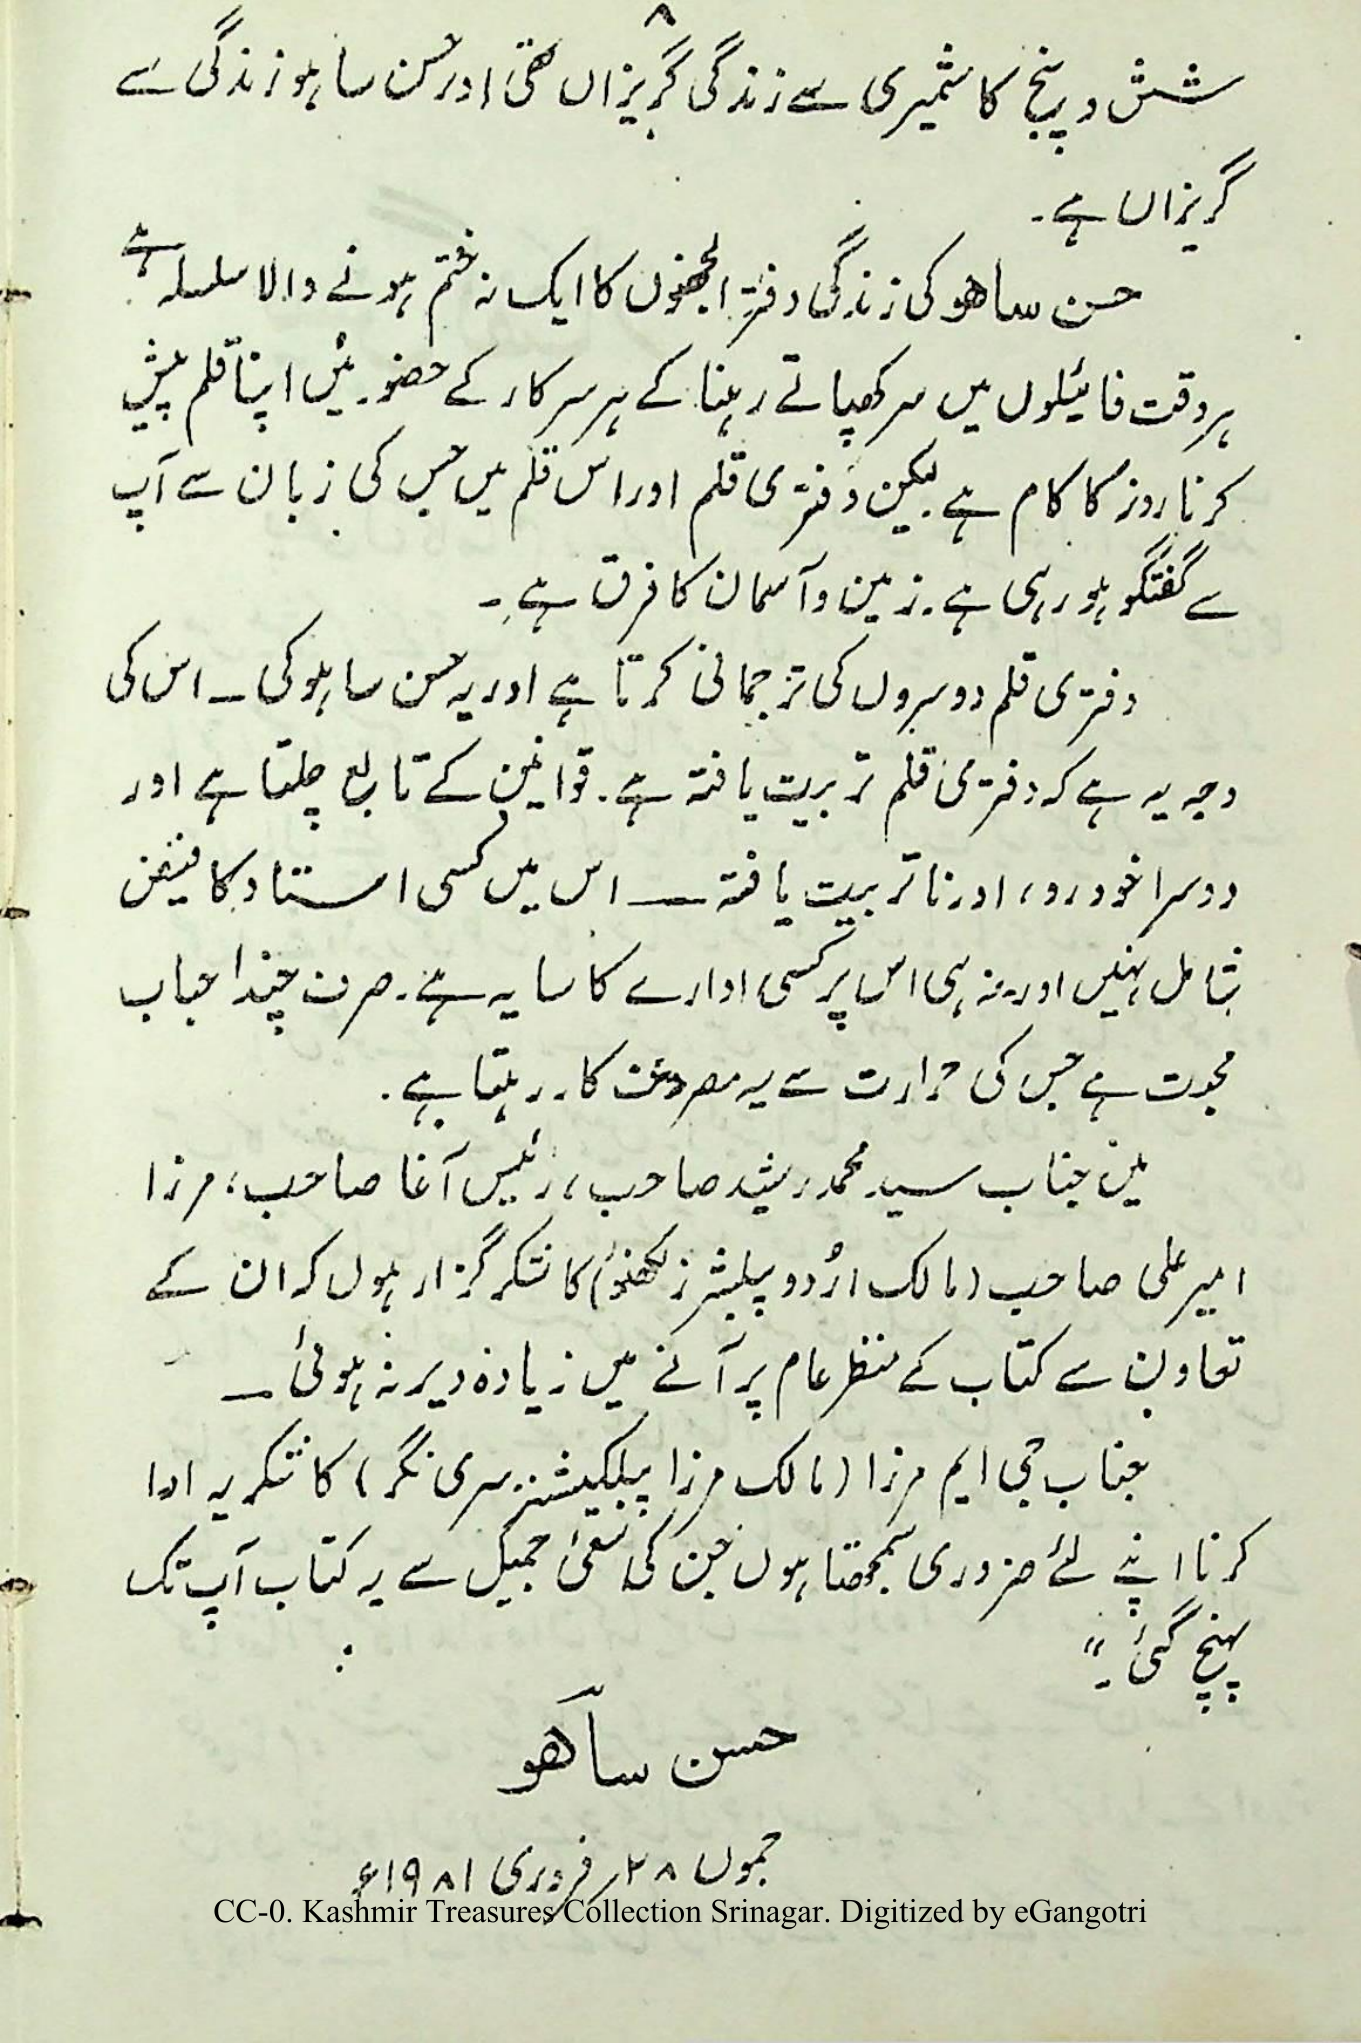 ۸
شش و پنج کاشمیری سے زندگی گریزاں تھی اور حسن ساہو زندگی سے
گریزاں ہے۔
حسن ساھو کی زندگی دفتر الجھنوں کا ایک نہ ختم ہونے والا سلسلہ ہے
ہر وقت فائیلوں میں سر کھپاتے رہنا کے ہر سرکار کے حضور میں اپنا قلم پیش
کرنا روز کا کام ہے لیکن دفتری قلم اور اس قلم میں جس کی زبان سے آپ
سے گفتگو ہو رہی ہے۔ زمین و آسمان کا فرق ہے۔
دفتری قلم دوسروں کی ترجمانی کرتا ہے اور یہ حسن ساہو کی ـ اس کی
وجہ یہ ہے کہ دفتری قلم تربیت یافتہ ہے۔ قوانین کے تابع چلتا ہے اور
دوسرا خود رو، اور نا تربیت یافتہ ـــ اس میں کسی استاد کا فیض
شامل نہیں اور نہ ہی اس پر کسی ادارے کا سایہ ہے۔ صرف چند احباب
محبت ہے جس کی حرارت سے یہ مصروف کار رہتا ہے۔
میں جناب سید محمد رشید صاحب، رئیس آغا صاحب، مرزا
امیر علی صاحب (مالک اردو پبلیشرز لکھنؤ) کا شکر گزار ہوں کہ ان کے
تعاون سے کتاب کے منظر عام پر آنے میں زیادہ دیر نہ ہوئی ـ
جناب جی ایم مرزا (مالک مرزا پبلکیشنز سری نگر) کا شکریہ ادا
کرنا اپنے لئے ضروری سمجھتا ہوں جن کی سعئ جمیل سے یہ کتاب آپ تک
پہنچ گئی ۔"
حسن ساھو
جموں ۲۸ر فروری ۱۹۸۱ء
CC-0. Kashmir Treasures Collection Srinagar. Digitized by eGangotri